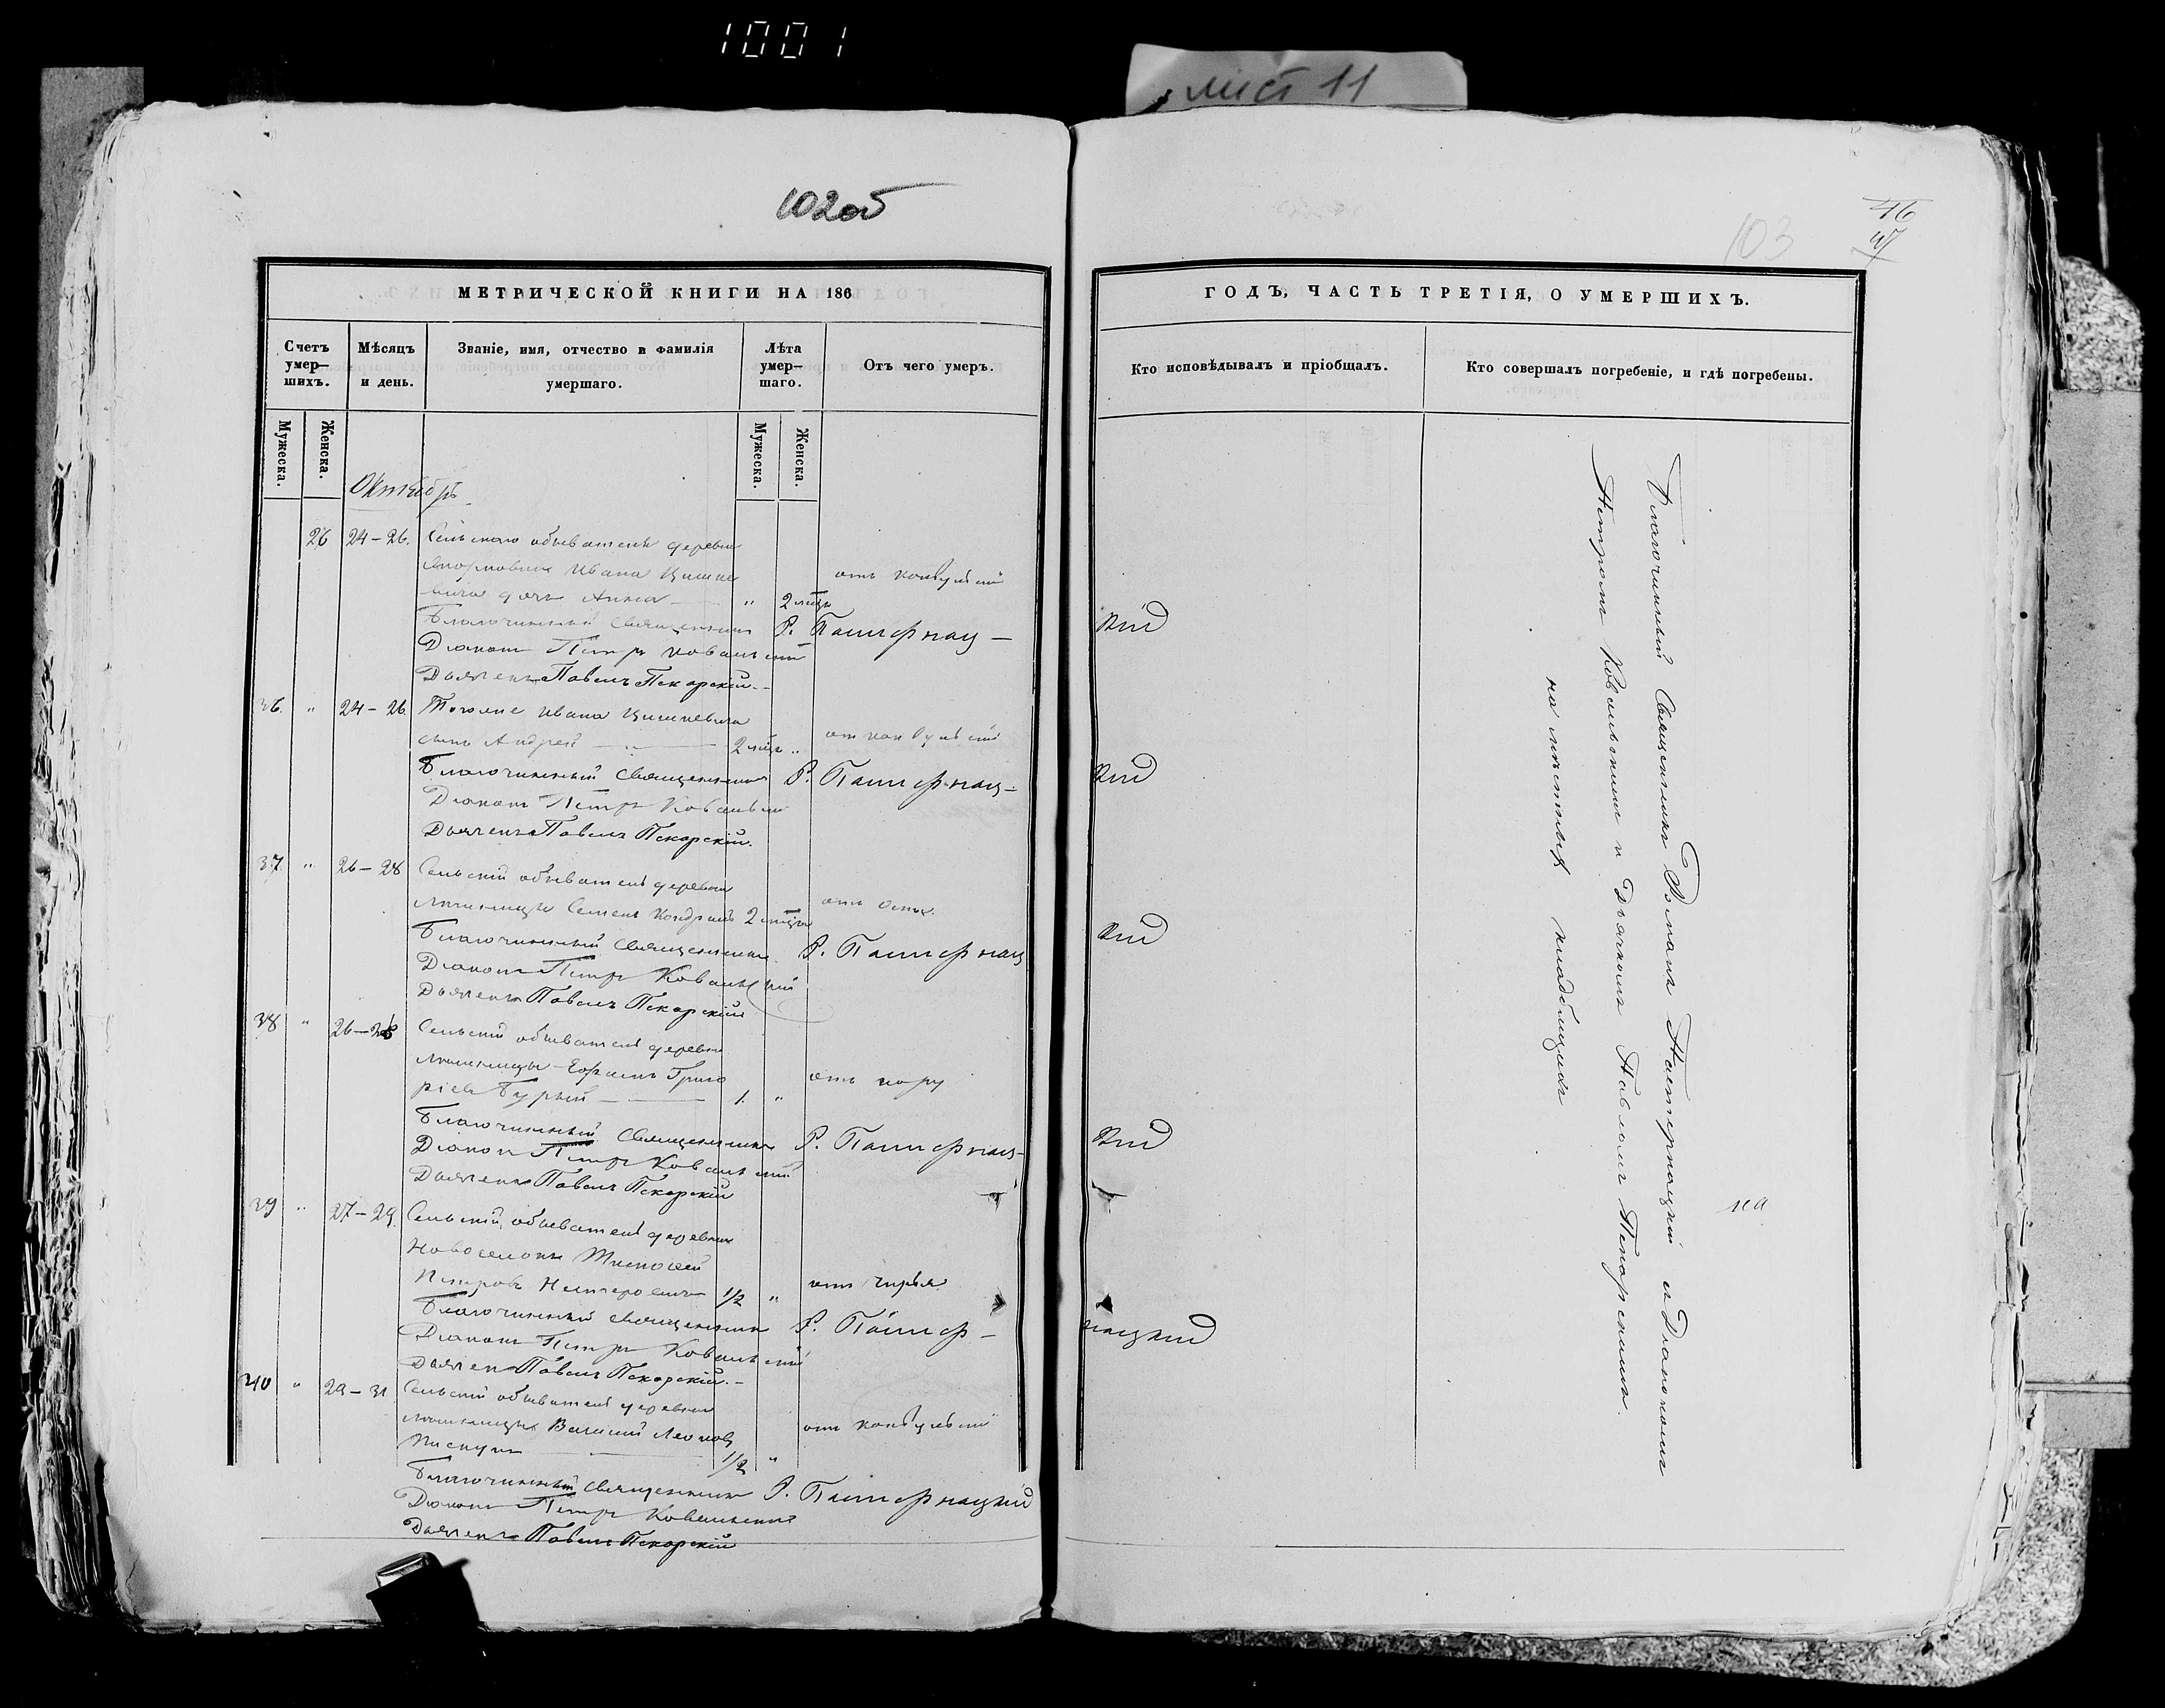 1001
лист 11
102об
46
47
103
МЕТРИЧЕСКОЙ КНИГИ НА 186
ГОДЪ, ЧАСТЬ ТРЕТІЯ, О УМЕРШИХЪ.
Счетъ умер—шихъ.
Мѣсяцъ и день.
Званіе, имя, отчество и фамилія умершаго.
Лѣта умер—шаго.
Отъ чего умеръ.
Кто исповѣдывалъ и пріобщалъ.
Кто совершалъ погребеніе, и гдѣ погребены.
Мужеска.
Женска.
Мужеска.
Женска.
Октябрь
26 24–26. Сельскаго обывателя деревни
Ивана
дочь Анна — " 2 отъ конвульсій
Благочинный Священникъ Р. Патернац–кій
Діаконъ Петръ Ковальскій
Дьячекъ Павелъ Пекарскій.
36. " 24–26. Тогоже Ивана
сынъ Андрей — 2 " от конвульсій
Благочинный Священникъ Р. Патернац–кій
Діаконъ Петръ Ковальскій
Дьячекъ Павелъ Пекарскій.
37. " 26–28 Сельскій обыватель деревни
Семенъ 2 отъ оспы.
Благочинный Священникъ Р. Патернацкій
Діаконъ Петръ Ковальскій
Дьячекъ Павелъ Пекарскій
38 " 26–28 Сельскій обыватель деревни
Григо
ріевъ Бурый — 1. " отъ кору
Благочинный Священникъ Р. Патернац–кій
Діаконъ Петръ Ковальскій
Дьячекъ Павелъ Пекарскій
39 " 27–29. Сельскій обыватель деревни
Тимофей
Петровъ 1/2 " отъ чирья
Благочинный Священникъ Р. Патер–нацкій
Діаконъ Петръ Ковальскій
Дьячекъ Павелъ Пекарскій.
40 " 29–31 Сельскій обыватель деревни
Василій отъ конвульсій
Пискунъ — 1/2 "
Благочинный Священникъ Р. Патернацкій
Діаконъ Петръ Ковальскій
Дьячекъ Павелъ Пекарскій
Благочинный Священникъ Романъ Патернацкій съ Діакономъ
Петромъ Ковальскимъ и Дьячкомъ Павломъ Пекарскимъ.
на
на мѣстныхъ кладбищахъ